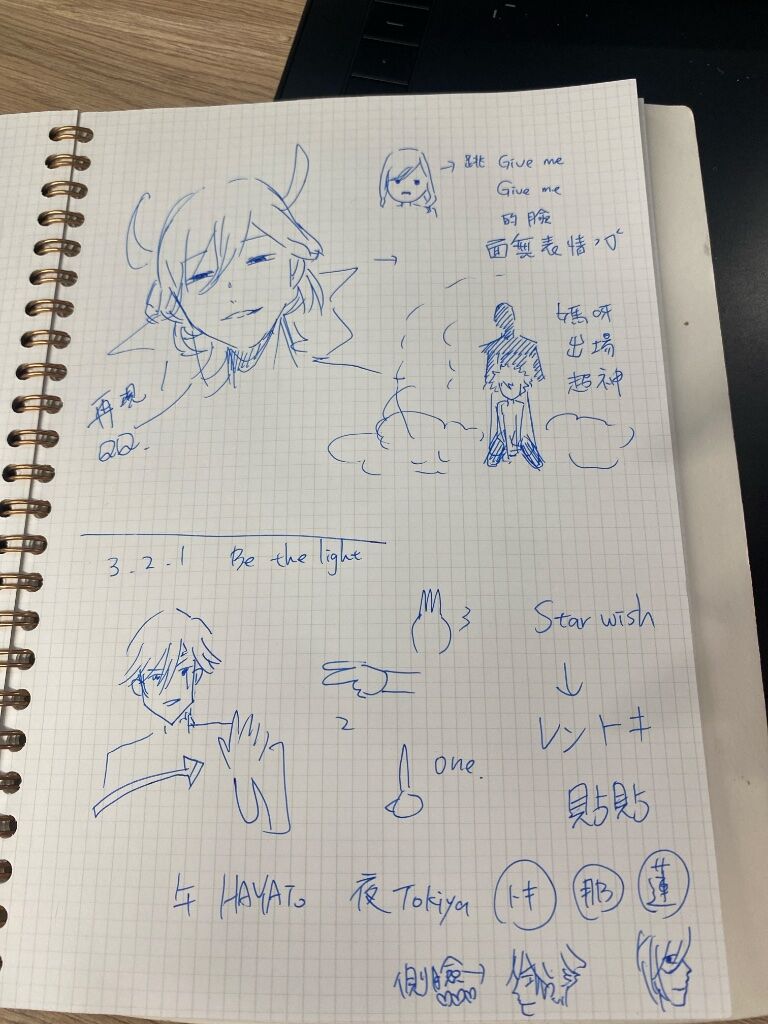 →跳 Give me
Give me
的臉
面無表情
→
媽呀
出場
超神
再現
QQ.
3.2.1 Be the light
3
Star wish
↓
2
レントキ
one.
貼貼
午 HAYATO 夜 Tokiya トキ 那 蓮
側臉→